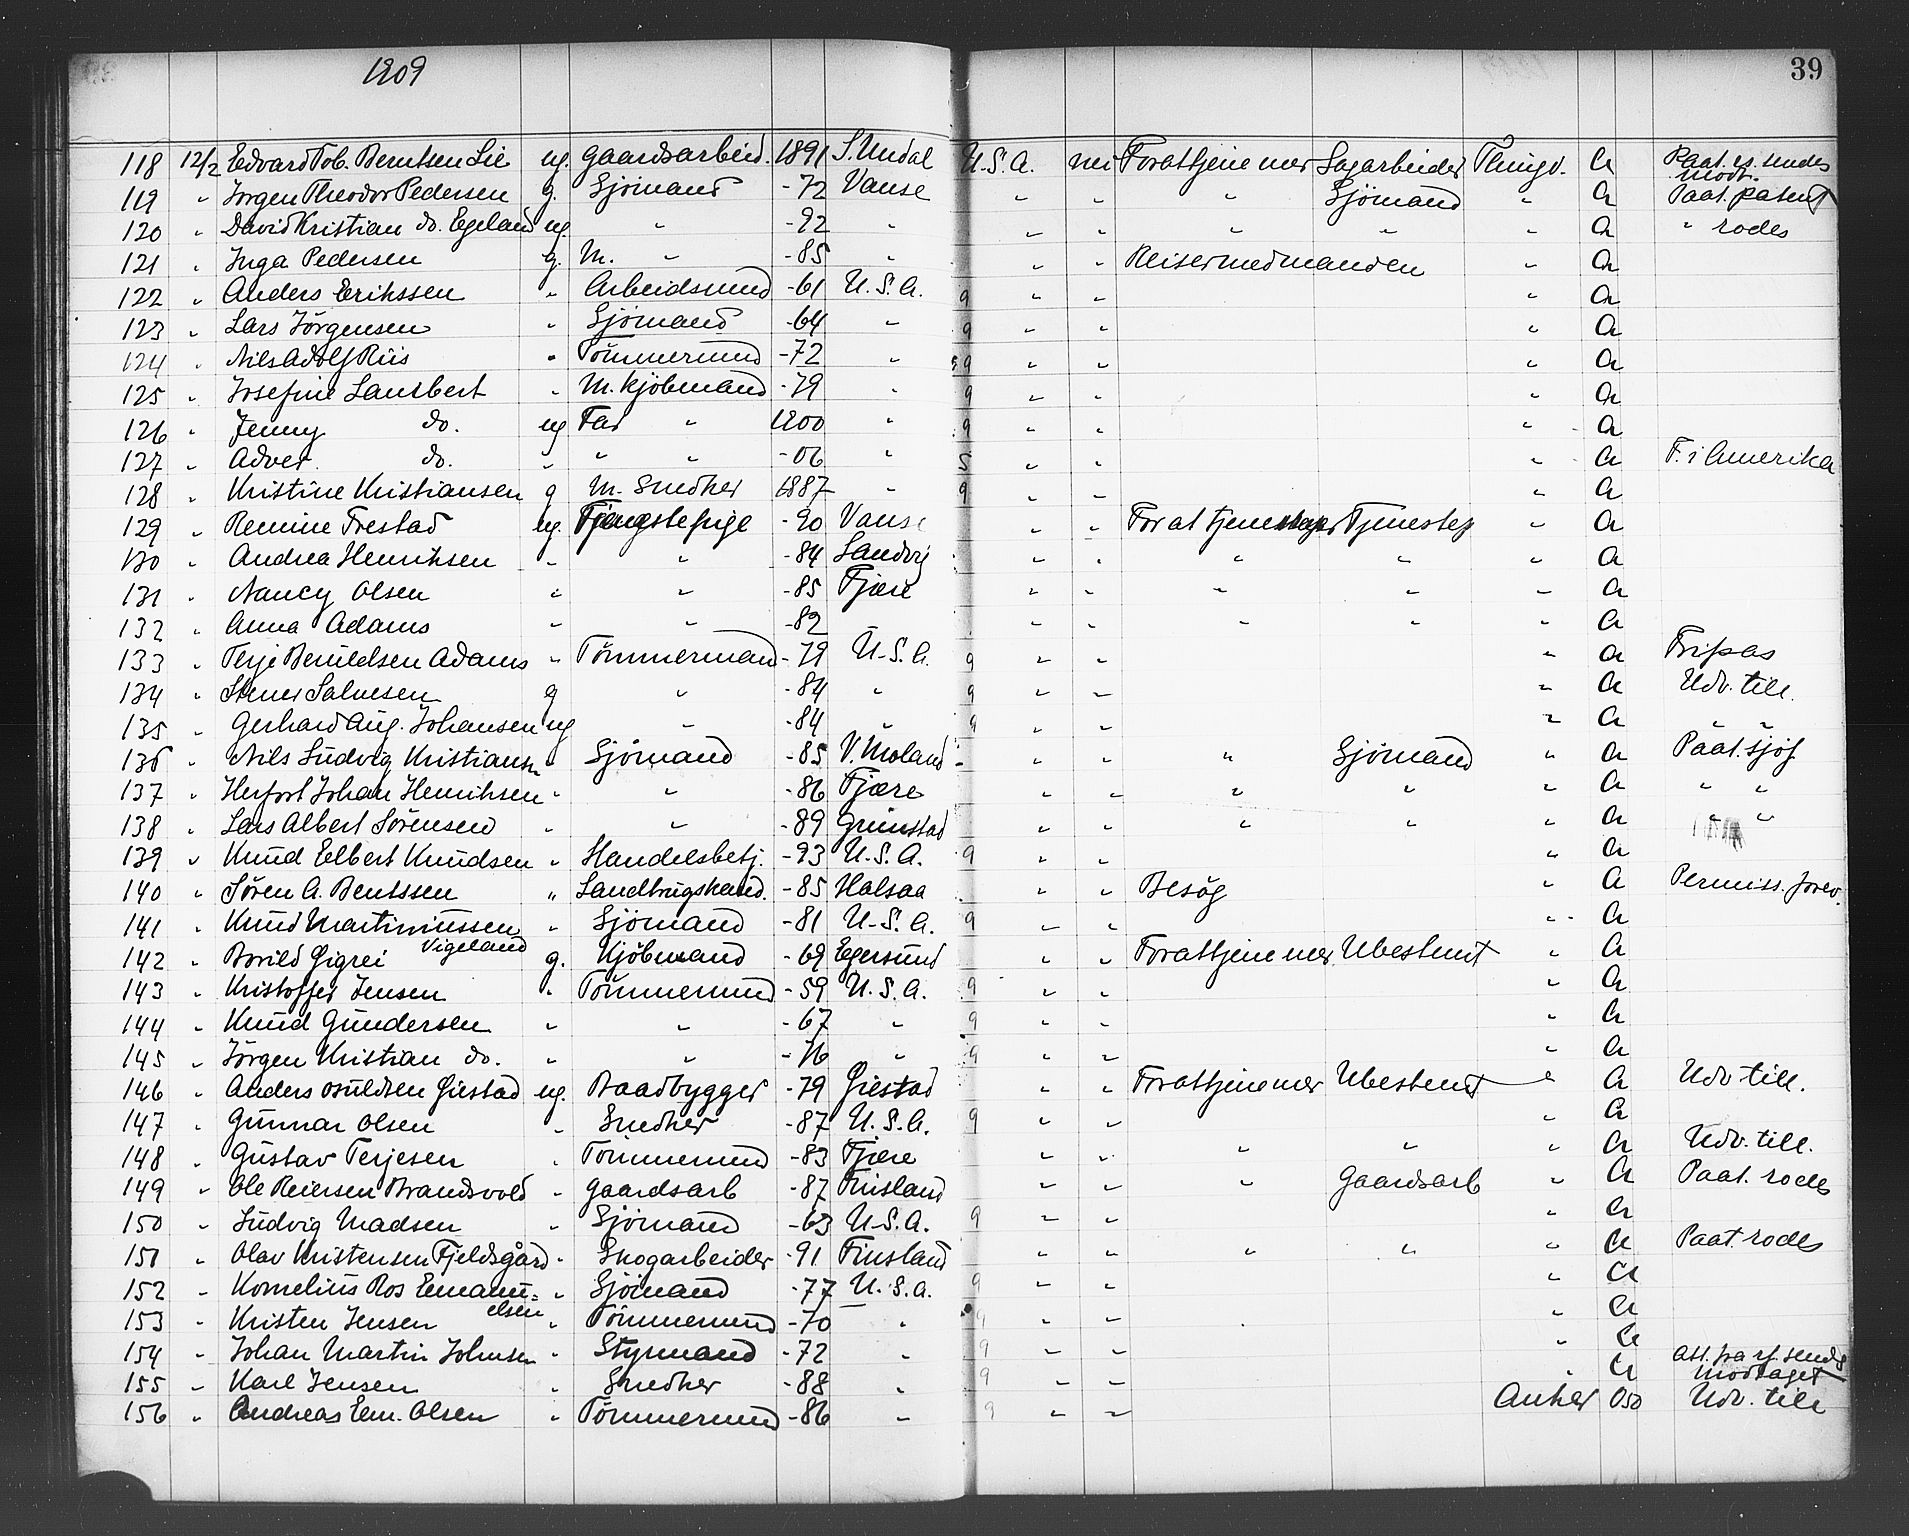 1909
39
118 12/2 Edvard Tob. Berntsen Lie ug. Gaardsarbeid. 1891 S. Undal U.S.A. nei For at tjene mer Sagarbeider Thingv. A Paat. rs. sendes modt.
119 " Jørgen Theodor Pedersen g. Sjömand -72 Vanse " " " Sjömand " A Paat. patent
120 " David Kristian do. Egeland ug. " -92 " " " " " " A " rodes
121 " Inga Pedersen g. M. " -85 " " " Reiser med manden " A
122 " Anders Erikssen " Arbeidsmd -61 U.S.A. 9 " " " A
123 " Lars Jörgensen " Sjömand -64 " 9 " " " A
124 " Nils Adolf Riis " Tömmermnd -72 " 9 " " " A
125 " Josefine Lambert " M. Kjöbmand -79 " 9 " " " A
126 " Jenny do. ug Far " 1900 " 9 " " " A
127 " do. " " " -06 " 5 " " " A F. i Amerika
128 " Kristine Kristiansen g M. Snedker 1887 " 9 " " " A
129 " Remine Frestad ug. Tjenestepige -90 Vanse " " For at tjene Tjenestep " A
130 " Andrea Henriksen " " -84 Landvig " " " " " A
131 " Nancy Olsen " " -85 Fjære " " " " " A
132 " Anna Adams " " -82 " " " " " A
133 " Terje Adams " Tömmermand -79 U.S.A. 9 " " " A Fripas
134 " Salvesen g " -84 " 9 " " " A Udv. till.
135 " Gerhard Aug. Johansen ug " -84 " 9 " " " A " "
136 " Nils Ludvig Kristiansn " Sjömand -85 V. Moland " " " Sjömand " A Paat. sjöf
137 " Herfort Johan Henriksen " " -86 Fjære " " " " " A " "
138 " Lars Albert Sörensen " " -89 Grimstad " " " " " A " "
139 " Knud Elbert Knudsen " Handelsbetj. -93 U.S.A. 9 " " " A
140 " Søren A. Bentssen " Landbrugskand. -85 Halsaa " " Besög " A Permiss. forev.
141 " Knud Martiniussen " Sjömand -81 U.S.A. 9 " " " A
142 " Gigrei Vigeland g. Kjöbmand -69 Egersund " " For at tjene mer Ubestemt " A
143 " Kristoffer Jensen " Tömmermnd -59 U.S.A. 9 " " " A
144 " Knud Gundersen " " -67 " 9 " " " A
145 " Jörgen Kristian do. " " -76 " 9 " " " A
146 " Anders Osuldsen Gjestad ug. Baadbygger -79 Gjestad " " For at tjene mer Ubestemt " A Udv till.
147 " Gunnar Olsen " Snedker -87 U.S.A. 9 " " " A
148 " Gustav Terjesen " Tömmermnd -83 Fjære " " " " " A Udv. till.
149 " Ole Reiersen Brandsvold " Gaardsarb -87 Finsland " " " Gaardsarb " A Paat. rodes
150 " Ludvig Madsen " Sjömand -63 U.S.A. 9 " " " A
151 " Olav Kristensen Fjeldsgård " Skogarbeider -91 Finsland " " " " " A Paat. rodes
152 " Kornelius Ros Emanu= elsen " Sjömand -77 U.S.A. 9 " " " A
153 " Kristen Jensen " Tömmermnd -70 " 9 " " " A
154 " Johan Martin Johnsen " Styrmand -72 " 9 " " " A
155 " Karl Jensen " Snedker -88 " 9 " " " A Att. fra rf. sends modtaget
156 " Andreas Em. Olsen " Tömmermnd -86 " 9 " " Anker 050 Udv. till